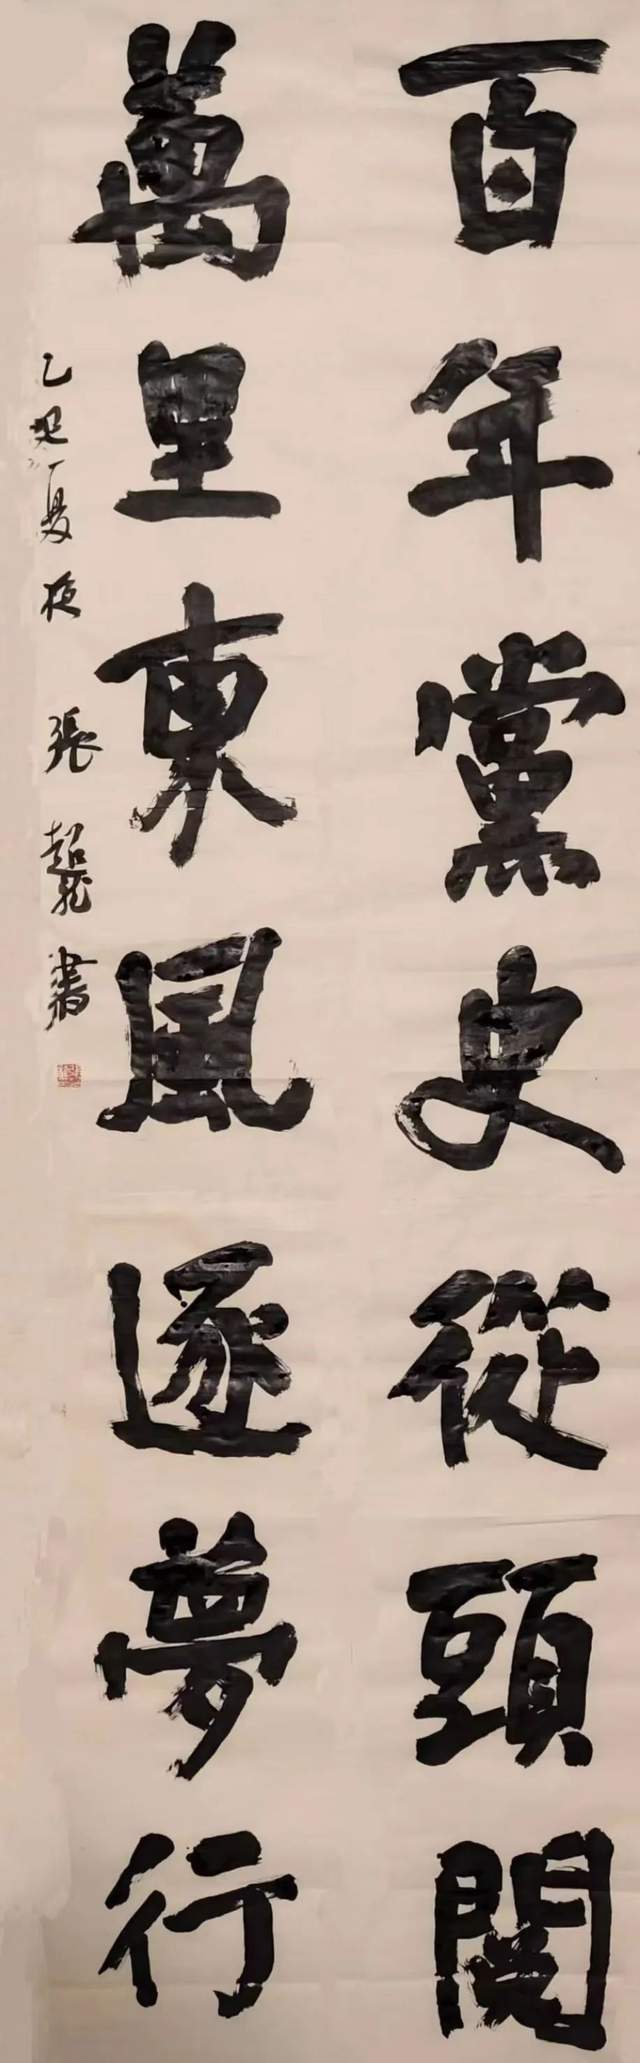 百年黨史從頭閱
萬里東風逐夢行
乙巳夏夜 張超龍書